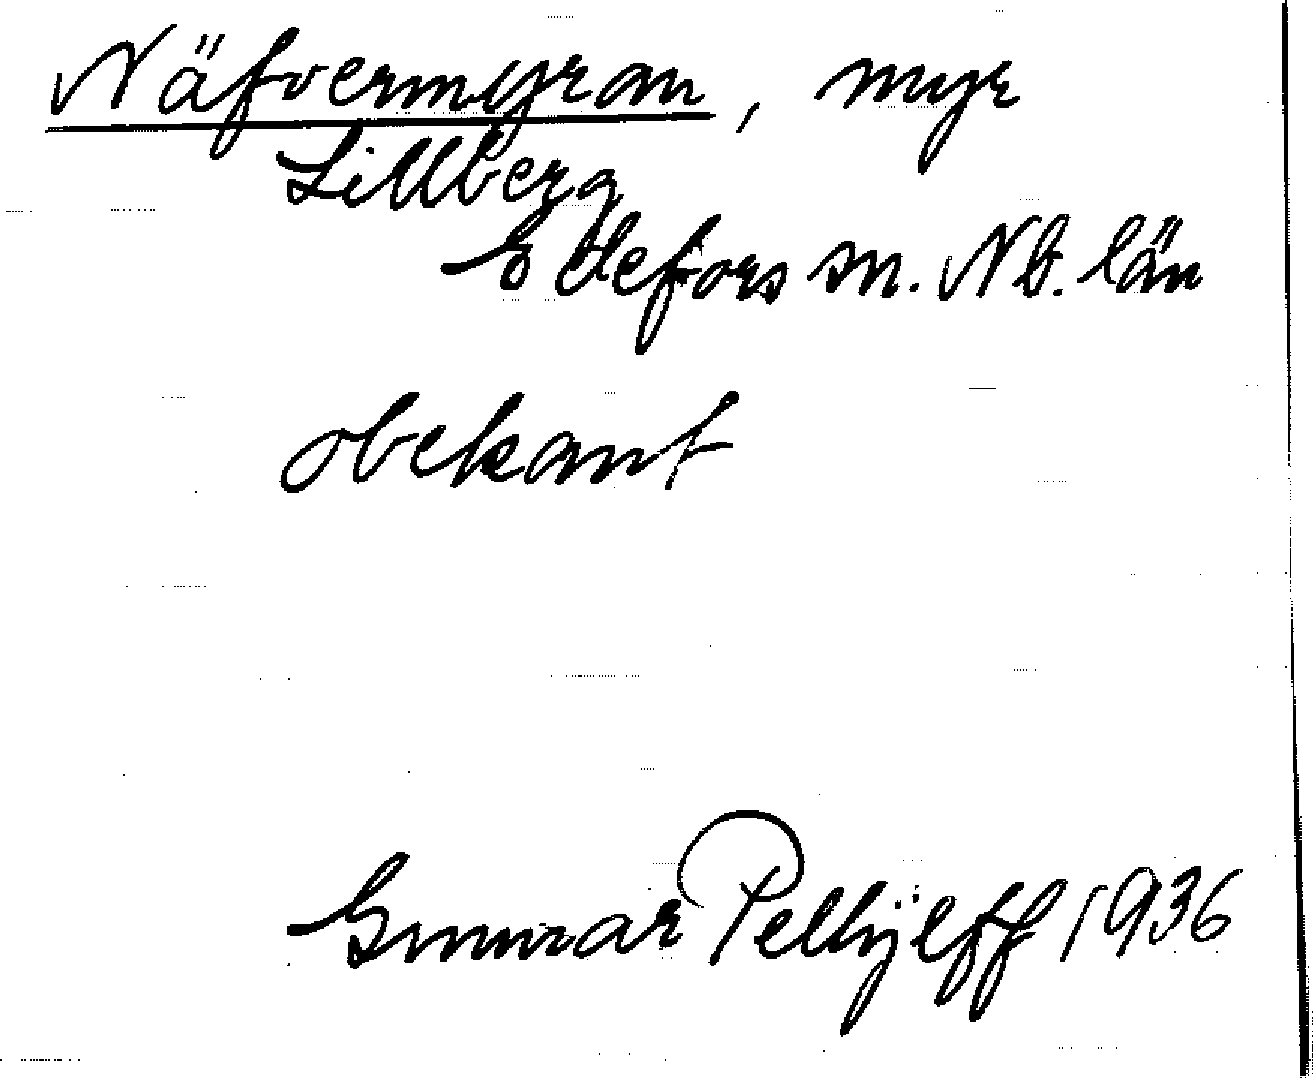 Näfvermyran, myr
Lillberg
Edefors sn. Nb. län
obekant
Gunnar Pellijeff 1936